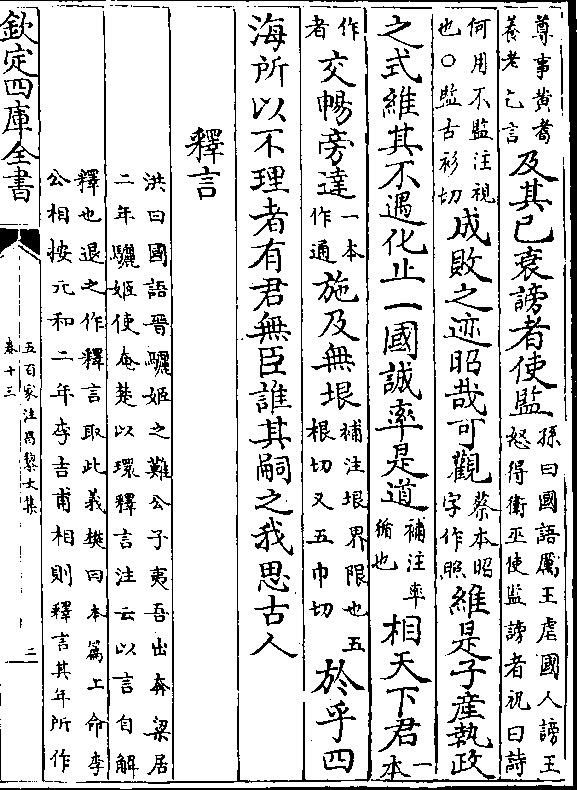 尊事黄耉養老乞言及其已衰謗者使監孫曰國語厲王虐國人謗王怒得衛巫使監謗者祝曰詩
何用不監注視也○監古衫切成敗之迹昭哉可觀蔡本昭字作照維是子産執政
之式維其不遇化止一國誠率是道補注率循也相天下君一本
作者交暢旁達一本作通施及無垠補注垠界限也五根切又五巾切於乎四
海所以不理者有君無臣誰其嗣之我思古人
釋言
洪曰國語晉驪姬之難公子夷吾出奔梁居二年驪姬使奄楚以環釋言注云以言自解
釋也退之作釋言取此義樊曰本篇上命李公相按元和二年李吉甫相則釋言其年所作
欽定四庫全書
五百家注昌黎文集
卷十三
二